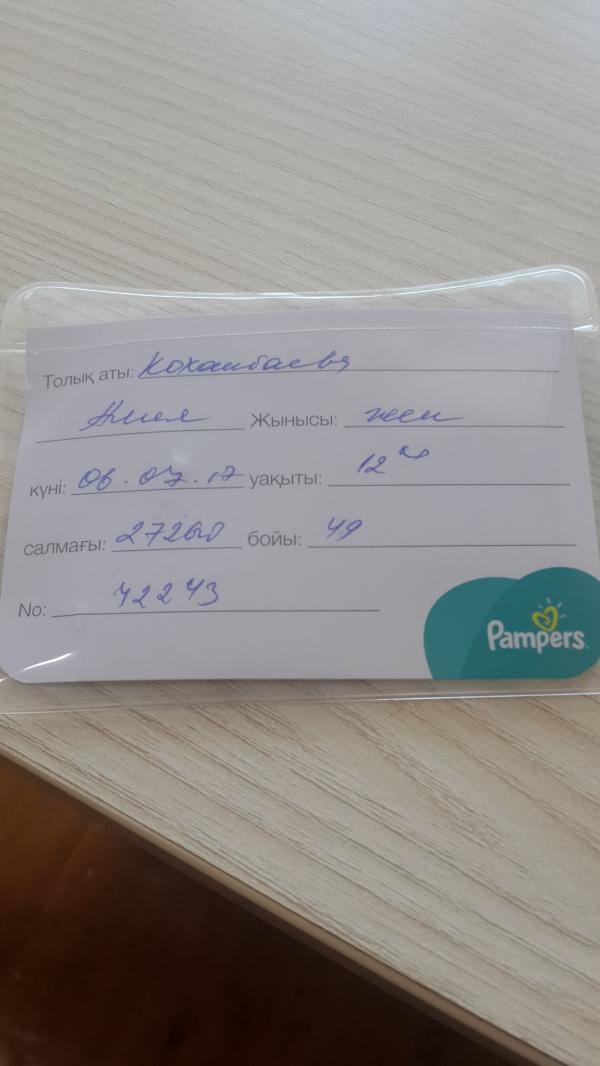 Толық аты: Кохамбаева
Жынысы: жен
күні: 06.07.17 уақыты: 12
салмағы: бойы: 49
No: 42243
Pampers